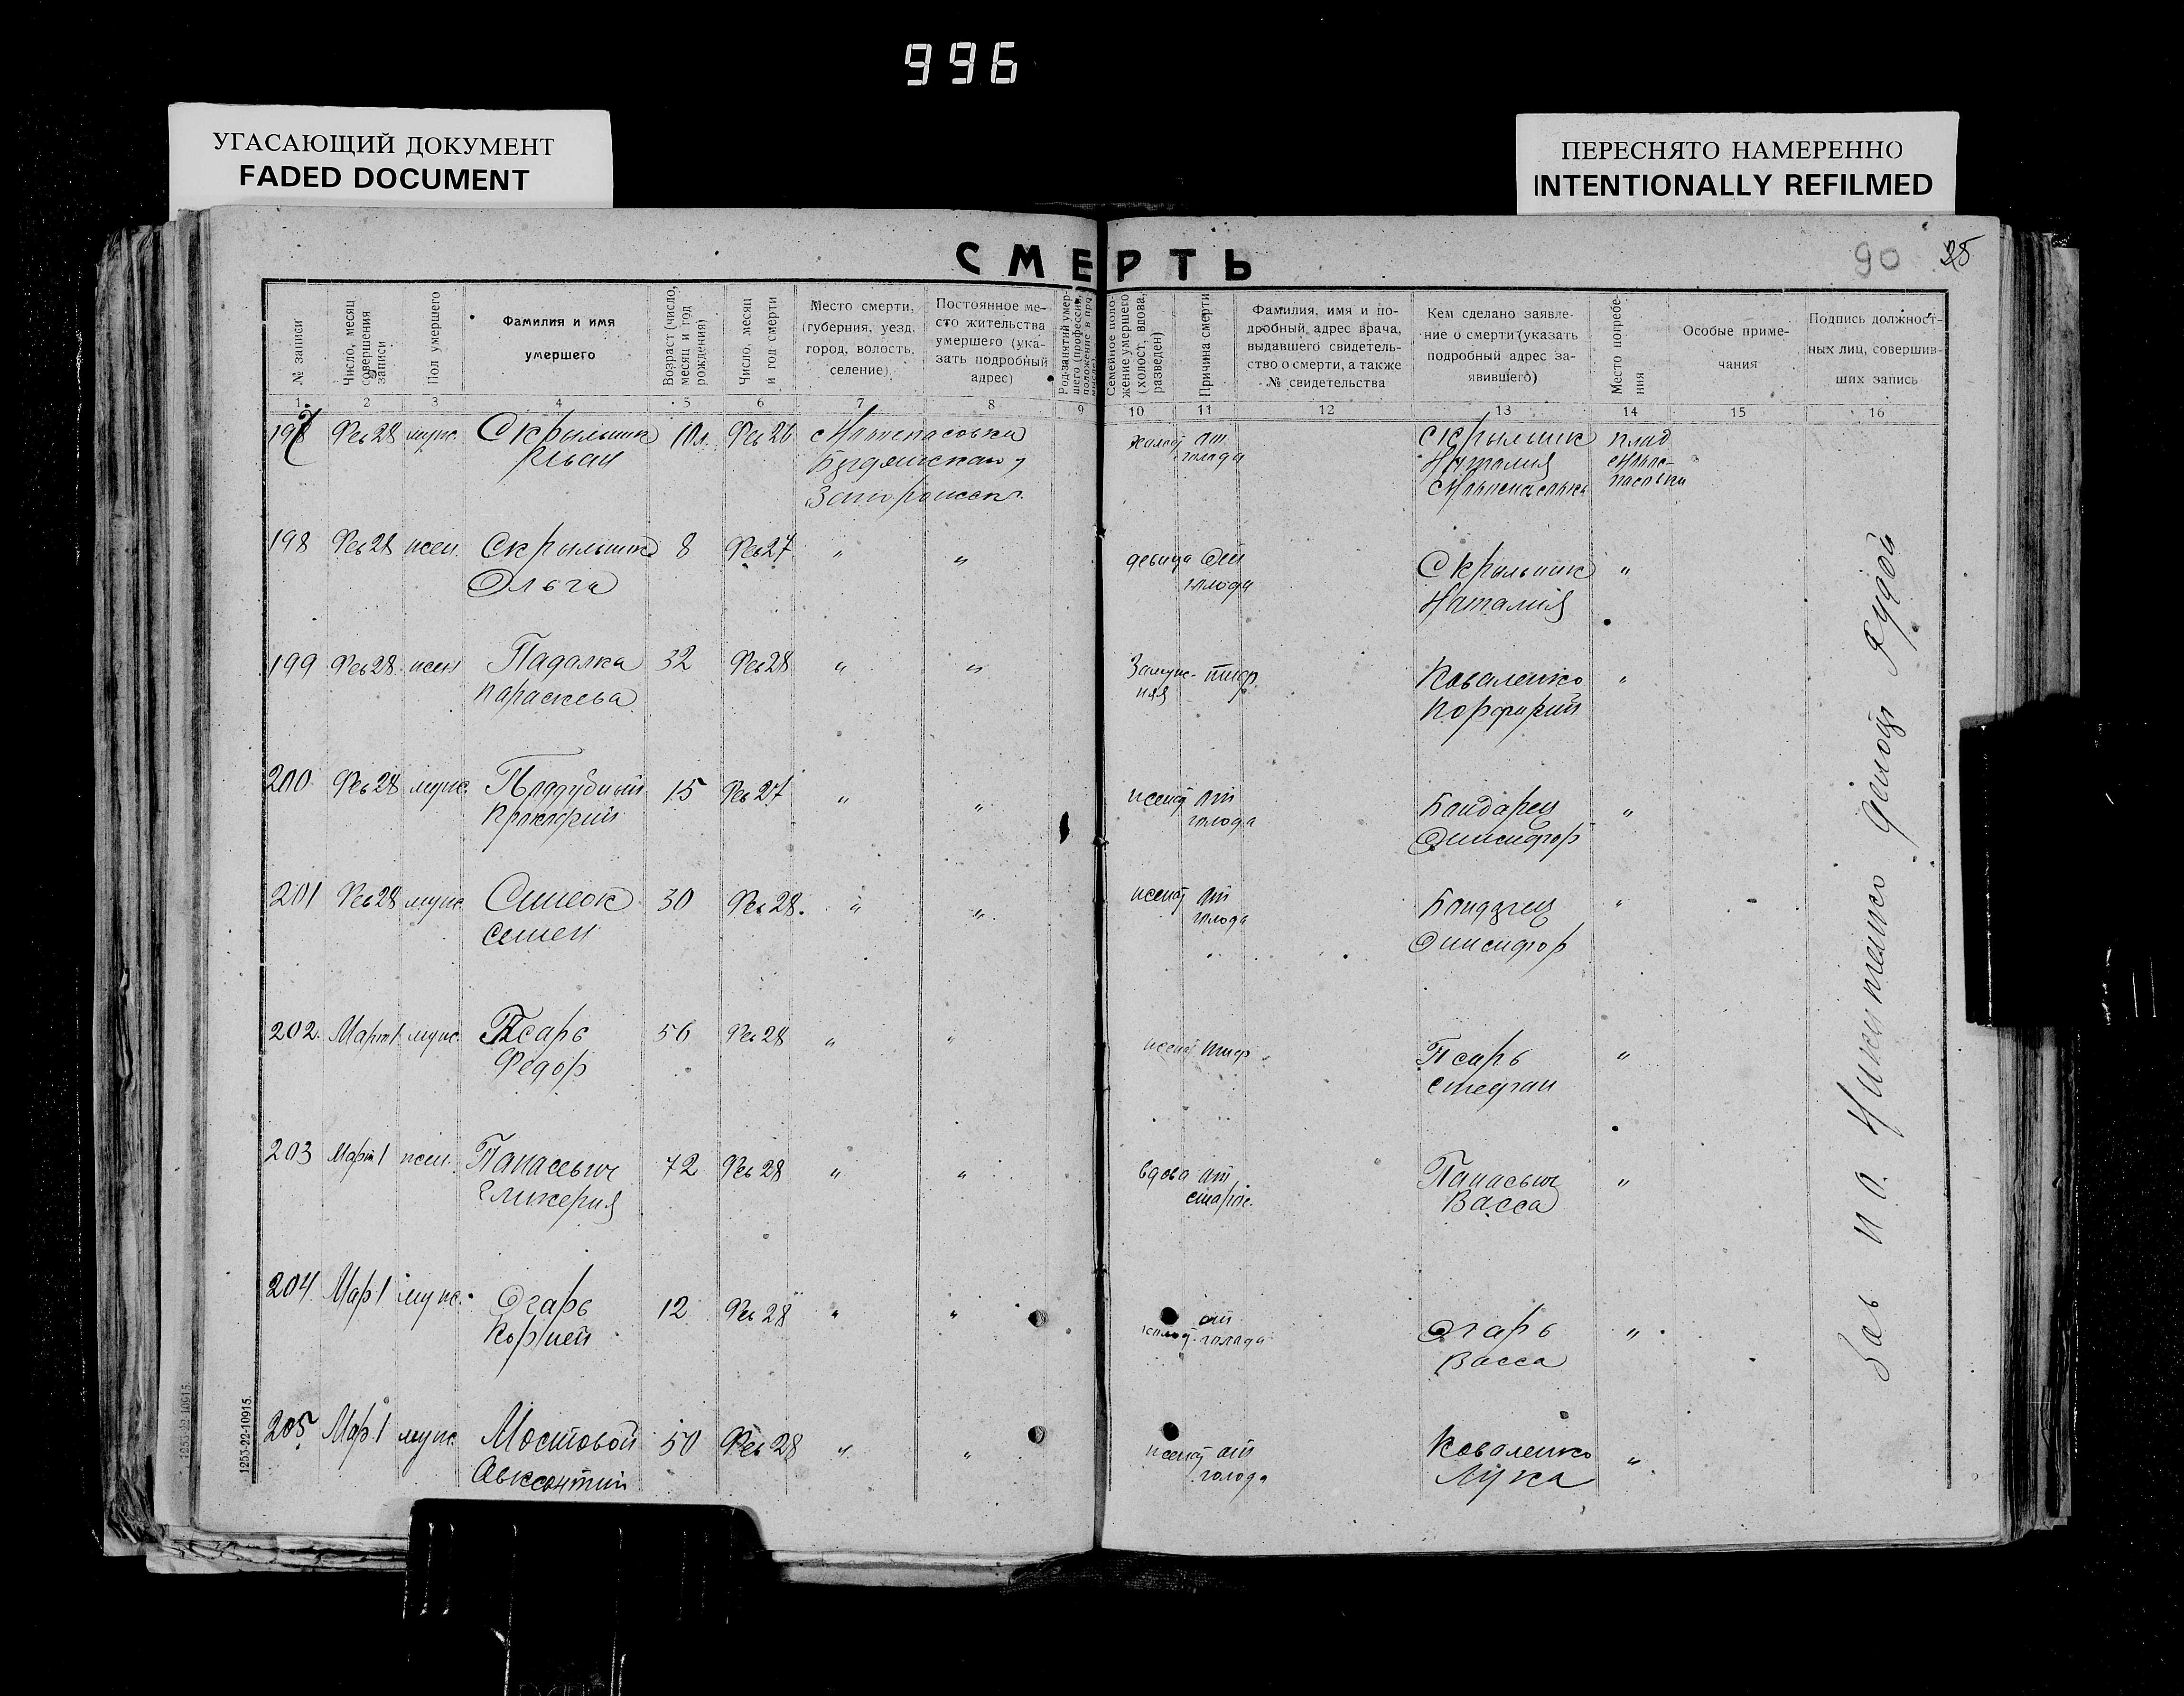 996
УГАСАЮЩИЙ ДОКУМЕНТ
FADED DOCUMENT
ПЕРЕСНЯТО НАМЕРЕННО
INTENTIONALLY REFILMED
СМЕРТЬ
90
№ записи
Число, месяц совершения записи
Пол умершего
Фамилия и имя
умершего
Возраст (число, месяц и год рождения)
Число, месяц и год смерти
Место смерти,
(губерния, уезд,
город, волость,
селение).
Постоянное ме-
сто жительства
умершего (ука-
зать подробный
адрес)
Род занятий умер-
шего (профессия,
положение в про-
Семейное поло-
жение умершего
(холост, вдова,
разведен)
Причина смерти
Фамилия, имя и по-
дробный, адрес врача,
выдавшего свидетель-
ство о смерти, а также
№ свидетельства
Кем сделано заявле-
ние о смерти (указать
подробный адрес за-
явившего)
Место погребе-
ния
Особые приме-
чания
Подпись должност-
ных лиц, совершив-
ших запись
1 2 3 4 5 6 7 8 9 10 11 12 13 14 15 16
197 Фев 28 муж. Скрыльник Фев 26 от Скрыльник
Иван голода Наталия
198 Фев 28 жен. Скрыльник 8 Фев 27 " " девица от Скрыльник "
Ольга голода Наталия
199 Фев 28 жен Падалка 32 Фев 28 " " Замуж- тиф Коваленко "
Параскева няя Порфирий
200 Фев 28 муж. Поддубный 15 Фев 27 " " от Бондарец "
Прокофий голода Онисифор
201 Фев 28 муж 30 Фев 28. " " от Бондарец "
Семен голода Онисифор
202. Март 1 муж. Псарь 56 Фев 28 " " тиф Псарь "
Федор Стефан
203 Март 1 жен. Панасевич 72 Фев 28 " " вдова от Панасевич "
Гликерия старос. Васса
204. Мар 1 муж. Огарь 12 Фев 28 " " от Огарь "
Корней голода Васса
205 Мар. 1 муж. Мостовой 50 Фев 28 " " от Коваленко "
Авксентий голода Лука
Зав п. о. Никитенко
1253-22-10915.